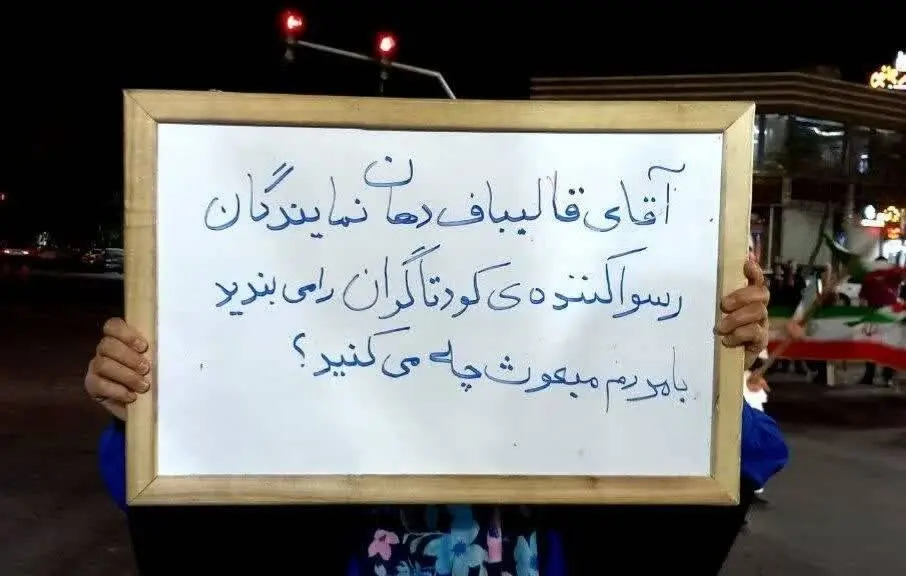 آقای قالیباف دهان نمایندگان
رسواکننده ی کودتاگران را می بندید
با مردم مبعوث چه می کنید؟